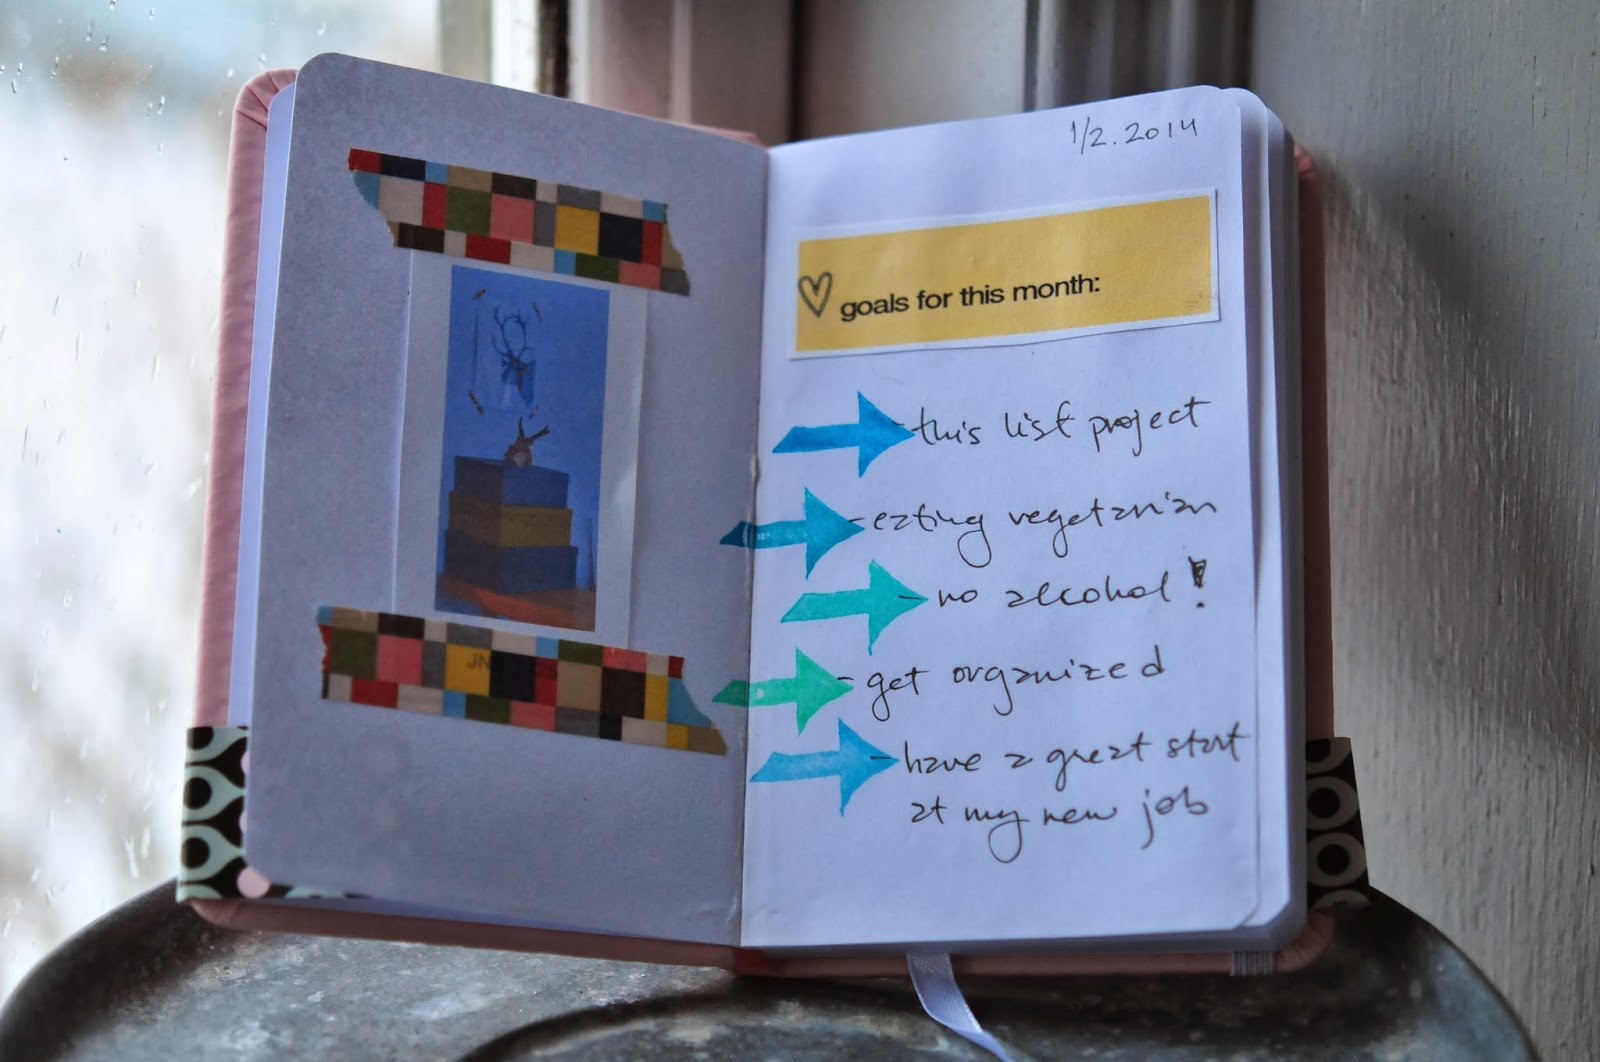 JN
1/2.2014
goals for this month:
this list project
eating vegetarian
no alcohol!
get organized
have a great start
at my new job